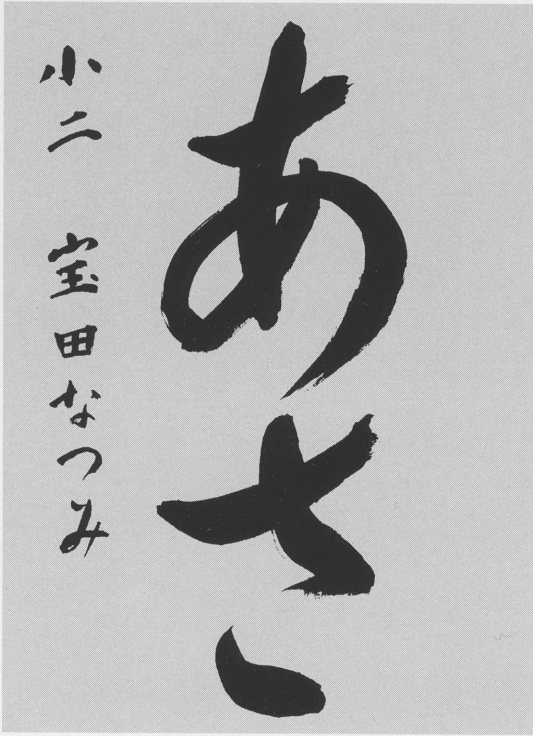 あさ
小二 宝田なつみ